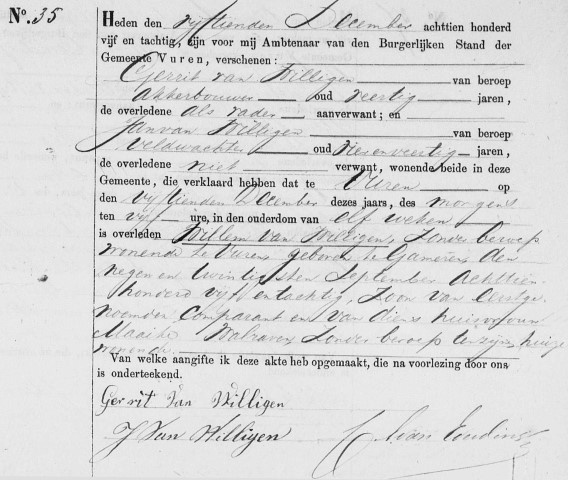 No. 35
Heden den vijftienden December achttien honderd
vijf en tachtig, zijn voor mij Ambtenaar van den Burgerlijken Stand der
Gemeente Vuren, verschenen:
Gerrit van Willigen van beroep
akkerbouwer oud veertig jaren,
de overledene als vader aanverwant; en
Jan van Willigen van beroep
veldwachter oud jaren,
de overledene niet verwant, wonende beide in deze
Gemeente, die verklaard hebben dat te Vuren op
den vijftienden December dezes jaars, des morgens
ten vijf ure, in den ouderdom van elf weken
is overleden Willem van Willigen, zonder beroep
wonende te Vuren, geboren te Gameren den
negen en twintigsten September achttien
honderd vijf en tachtig, zoon van eerstge
noemden comparant en van diens huisvrouw
Maaike Walraven zonder beroep ten zijnen huize
wonende.
Van welke aangifte ik deze akte heb opgemaakt, die na voorlezing door ons
is onderteekend.
Gerrit Van Willigen
J Van Willigen